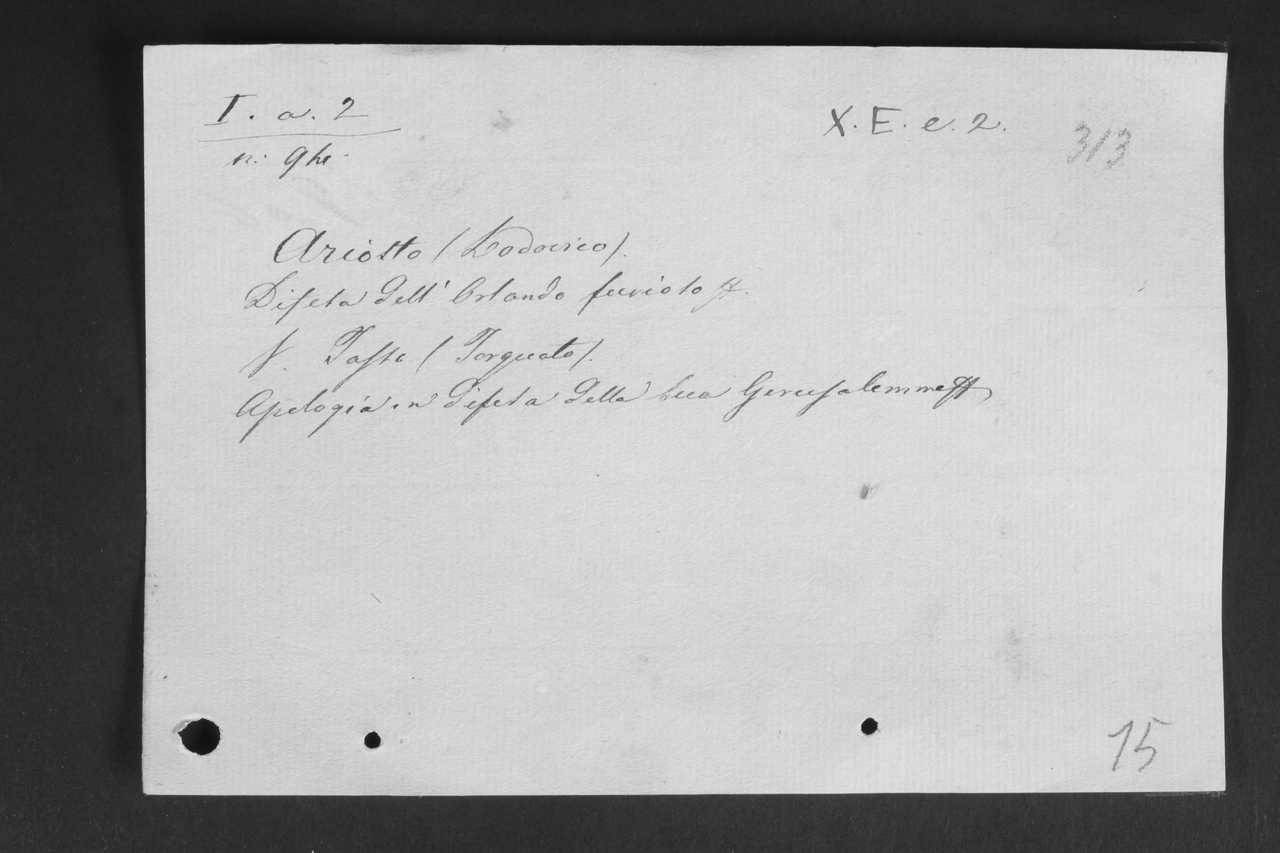 I. a. 2
X. E. e. 2.
313
n. 9
Ariosto (Lodovico).
Difesa dell' Orlando furioso
V. Tasso (Torquato).
Apologia in difesa della sua Gerusalemme
15